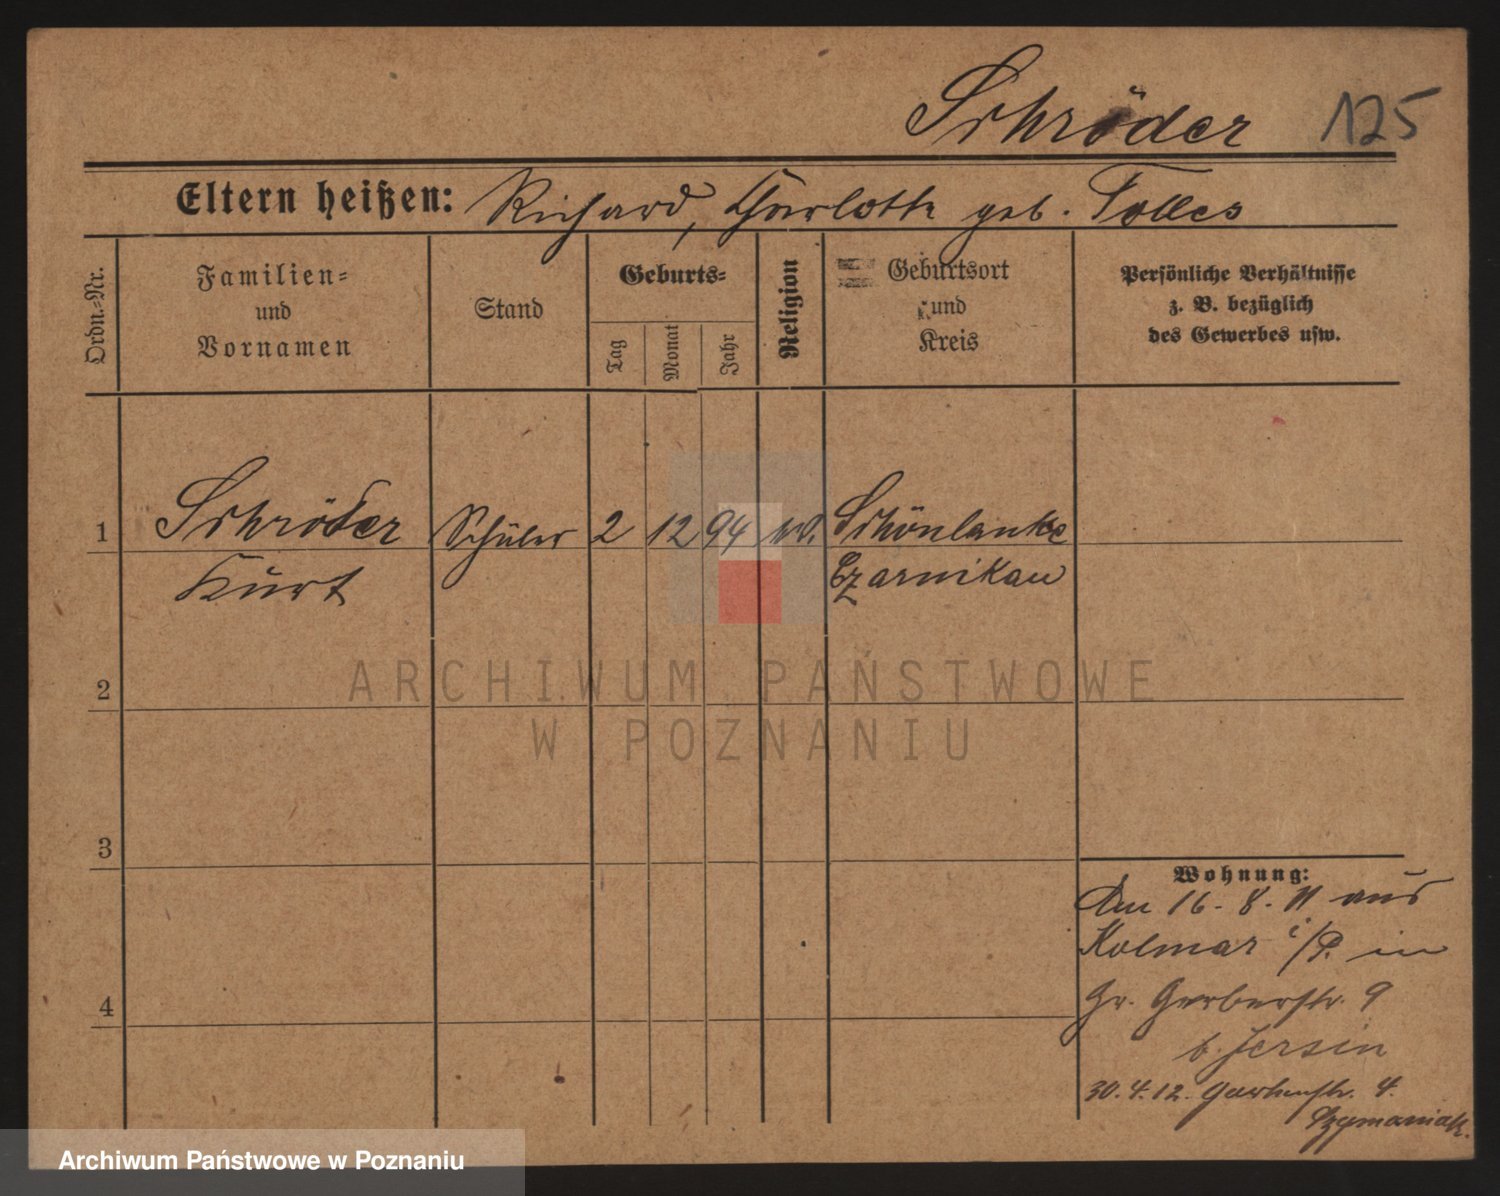 Schröder 125
Eltern heißen: Richard, Charlotte geb. Tolles
Ordn.-Nr.
Familien-
und
Vornamen
Stand
Geburts-
Tag
Monat
Jahr
Religion
Geburtsort
und
Kreis
Persönliche Verhältnisse
z. B. bezüglich
des Gewerbes usw.
1 Schröder Schüler 2 12 94 Schönlanke
Kurt Czarnikau
2
3
4
Wohnung:
Am 16. 8. 11 aus
Kolmar i/P. in
Gr. Gerberstr. 9
b. Jersin
30.4.12. Gartenstr. 4.
Szymaniak.
ARCHIWUM PAŃSTWOWE
W POZNANIU
Archiwum Państwowe w Poznaniu